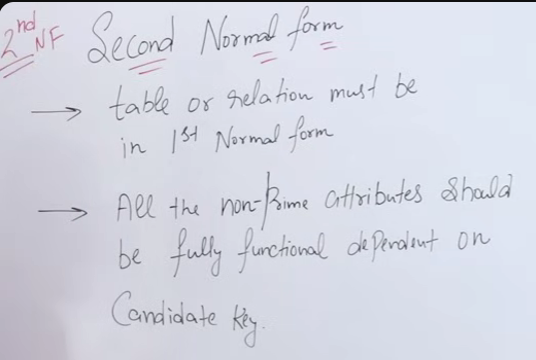 2nd NF Second Normal form
→ table or relation must be
in 1st Normal form
→ All the non-Prime attributes should
be fully functional dependent on
Candidate key.